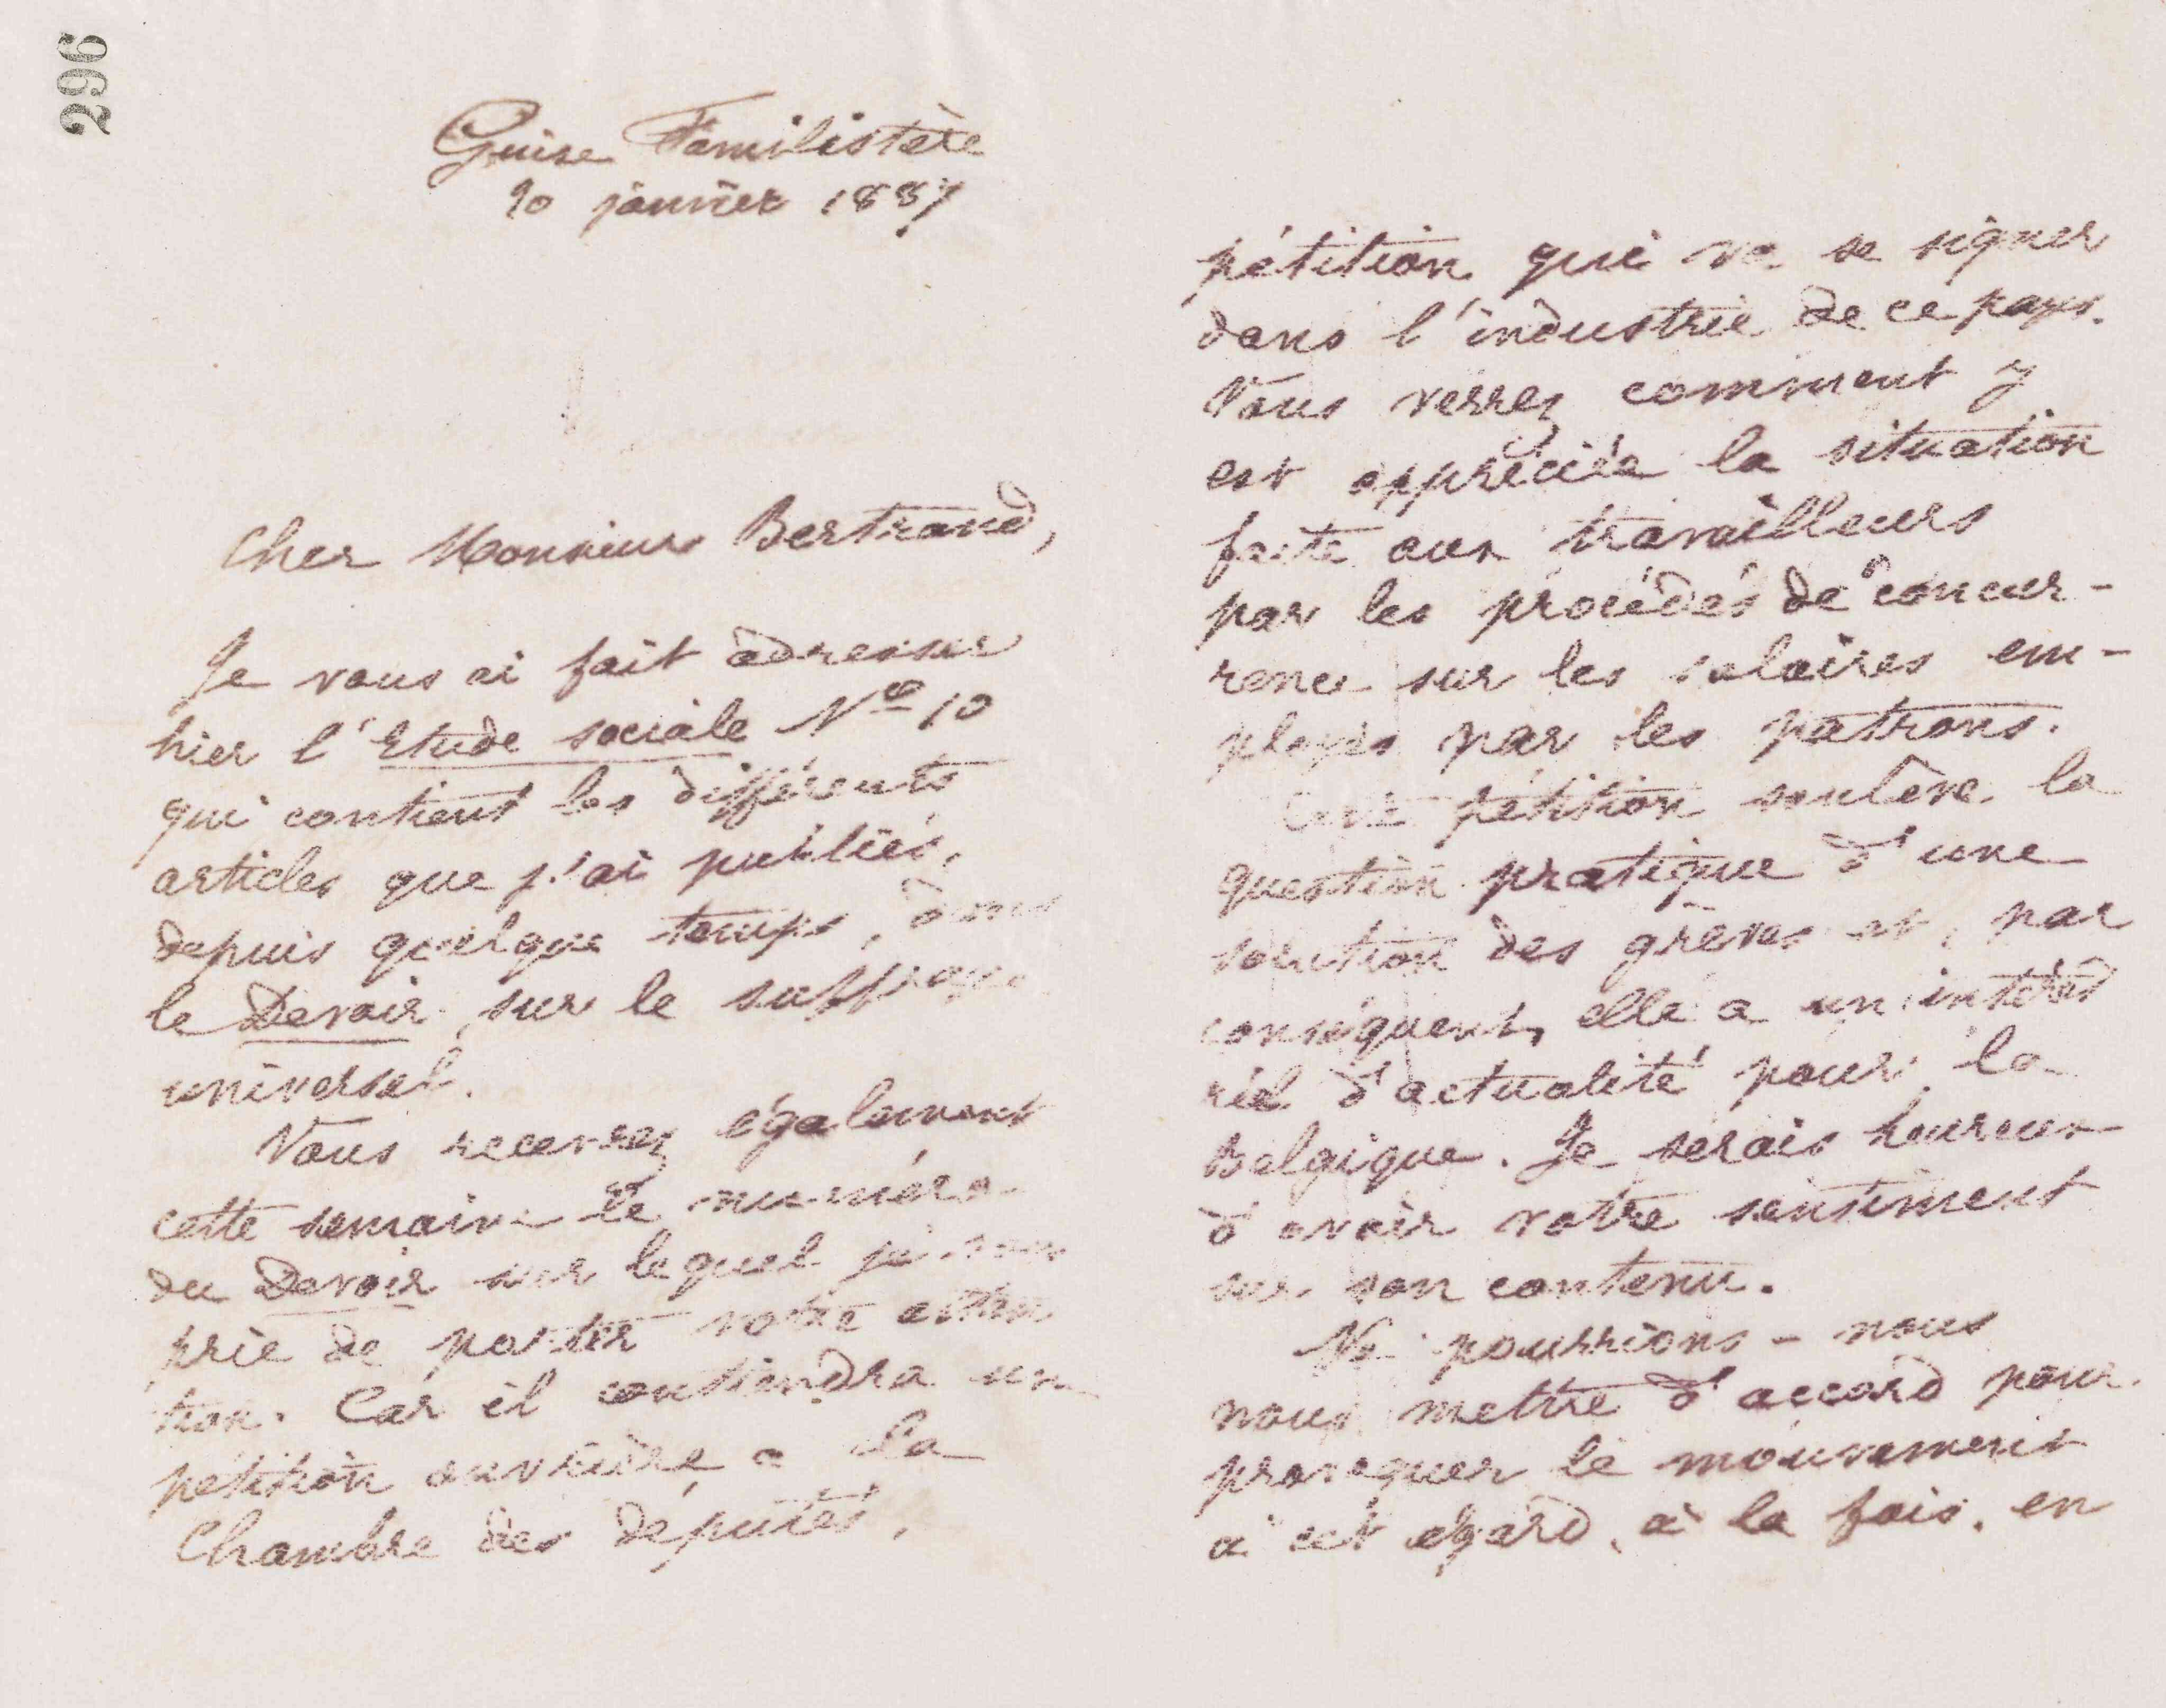 296
Guise Familistère
janvier 1887
Cher Monsieur Bertrand,
Je vous ai fait adresser
hier l'Etude sociale Nº 10
qui contient les différents
articles que j'ai publiés,
depuis quelque temps, dans
le Devoir, sur le suffrage
universel.
Vous recevrez également
cette semaine le numéro
du Devoir sur lequel je vous
prie de porter votre atten
tion. Car il contiendra un
pétition ouvrière a la
Chambre des députés,
pétition qui va se signer
dans l'industrie de ce pays.
Vous verrez comment y
est appréciée la situation
faite aux travailleurs
par les procédés de concur-
rence sur les salaires em-
ployés par les patrons.
Cette pétition soulève la
question pratique d'une
solution des grèves et, par
conséquent, elle a un intérêt
réel d'actualité pour la
Belgique. Je serais heureux
d'avoir votre sentiment
sur son contenu.
Ne pourrions-nous
nous mettre d'accord pour
provoquer le mouvement
à cet égard, à la fois, en